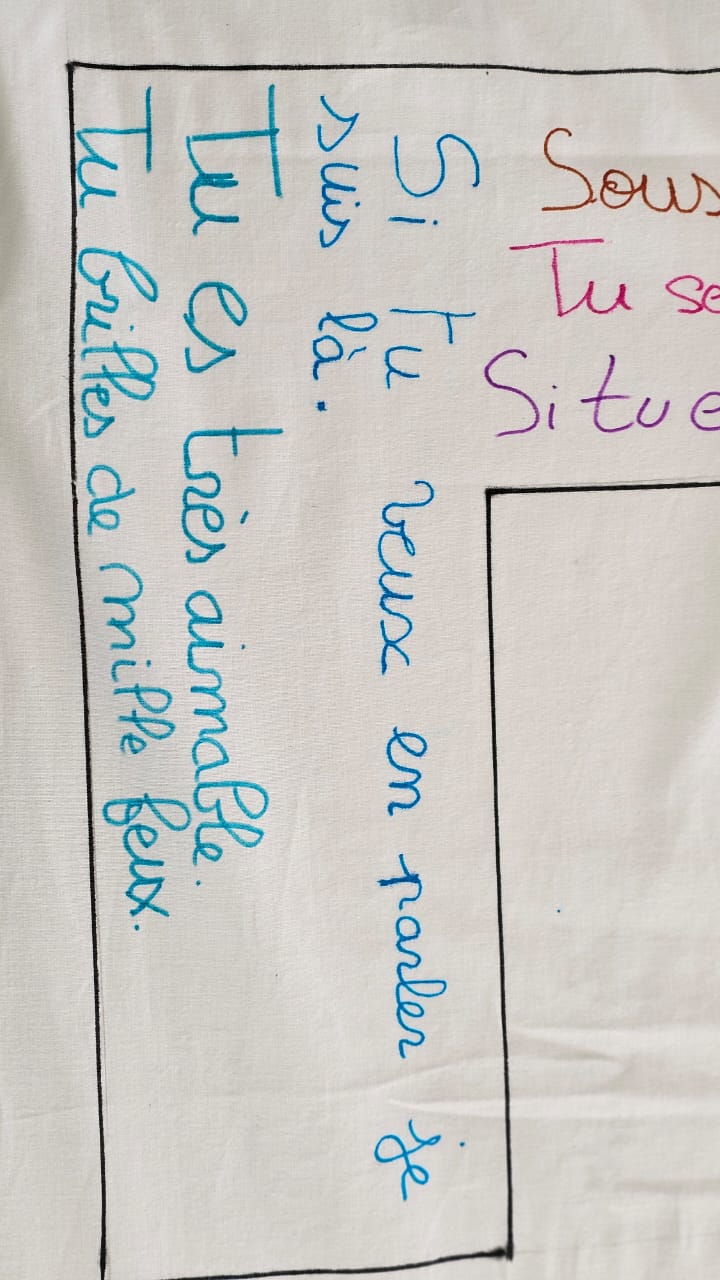 Sous
Tu se
Si tu e
Si tu veux en parler je
suis là.
Tu es très aimable.
Tu brilles de mille feux.